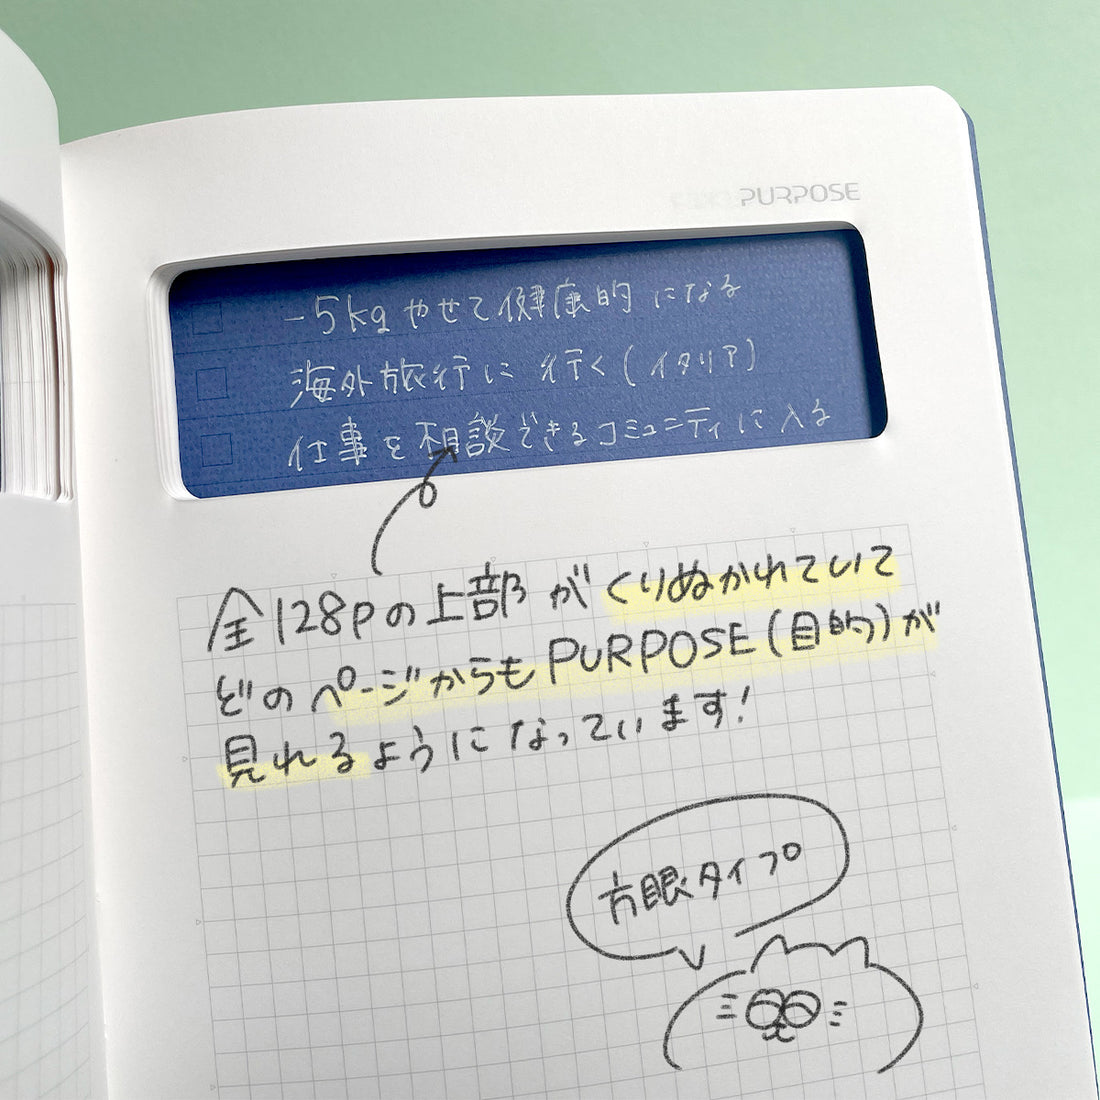 PURPOSE
-5kgやせて健康的になる
海外旅行に行く(イタリア)
仕事を相談できるコミュニティに入る
全128Pの上部がくりぬかれていて
どのページからもPURPOSE(目的)が
見れるようになっています!
方眼タイプ